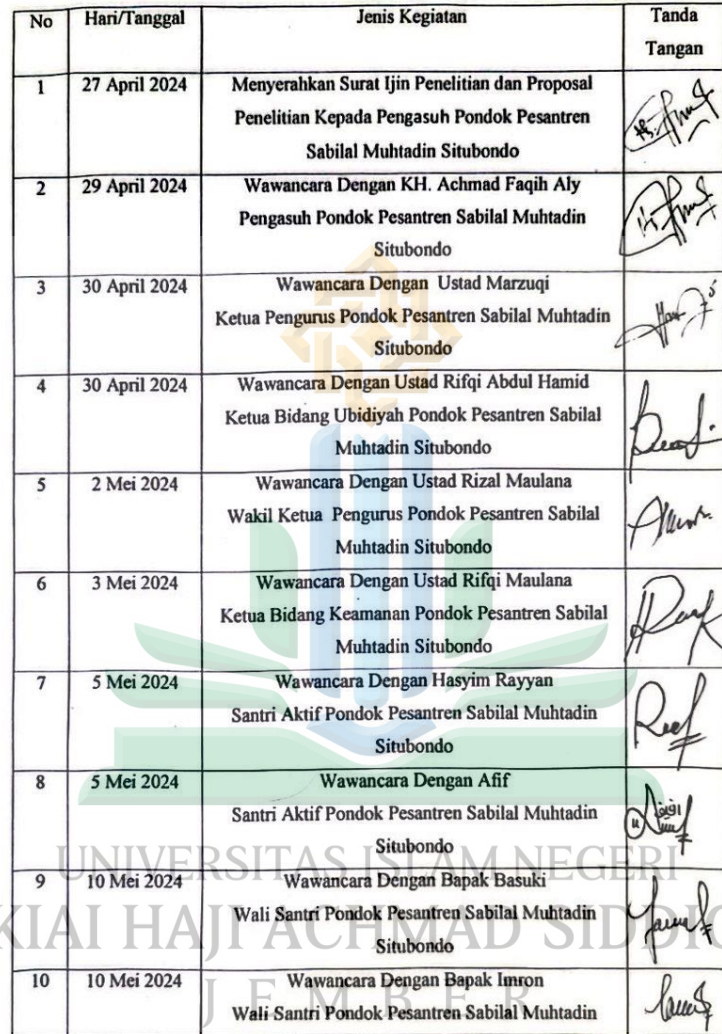 No Hari/Tanggal Jenis Kegiatan Tanda
Tangan
1 27 April 2024 Menyerahkan Surat Ijin Penelitian dan Proposal
Penelitian Kepada Pengasuh Pondok Pesantren
Sabilal Muhtadin Situbondo
2 29 April 2024 Wawancara Dengan KH. Achmad Faqih Aly
Pengasuh Pondok Pesantren Sabilal Muhtadin
Situbondo
3 30 April 2024 Wawancara Dengan Ustad Marzuqi
Ketua Pengurus Pondok Pesantren Sabilal Muhtadin
Situbondo
4 30 April 2024 Wawancara Dengan Ustad Rifqi Abdul Hamid
Ketua Bidang Ubidiyah Pondok Pesantren Sabilal
Muhtadin Situbondo
5 2 Mei 2024 Wawancara Dengan Ustad Rizal Maulana
Wakil Ketua Pengurus Pondok Pesantren Sabilal
Muhtadin Situbondo
6 3 Mei 2024 Wawancara Dengan Ustad Rifqi Maulana
Ketua Bidang Keamanan Pondok Pesantren Sabilal
Muhtadin Situbondo
7 5 Mei 2024 Wawancara Dengan Hasyim Rayyan
Santri Aktif Pondok Pesantren Sabilal Muhtadin
Situbondo
8 5 Mei 2024 Wawancara Dengan Afif
Santri Aktif Pondok Pesantren Sabilal Muhtadin
Situbondo
UNIVERSITAS ISLAM NEGERI
9 10 Mei 2024 Wawancara Dengan Bapak Basuki
Wali Santri Pondok Pesantren Sabilal Muhtadin
KIAI HAJI ACHMAD SIDDIQ
Situbondo
10 10 Mei 2024 Wawancara Dengan Bapak Imron
JEMBER
Wali Santri Pondok Pesantren Sabilal Muhtadin